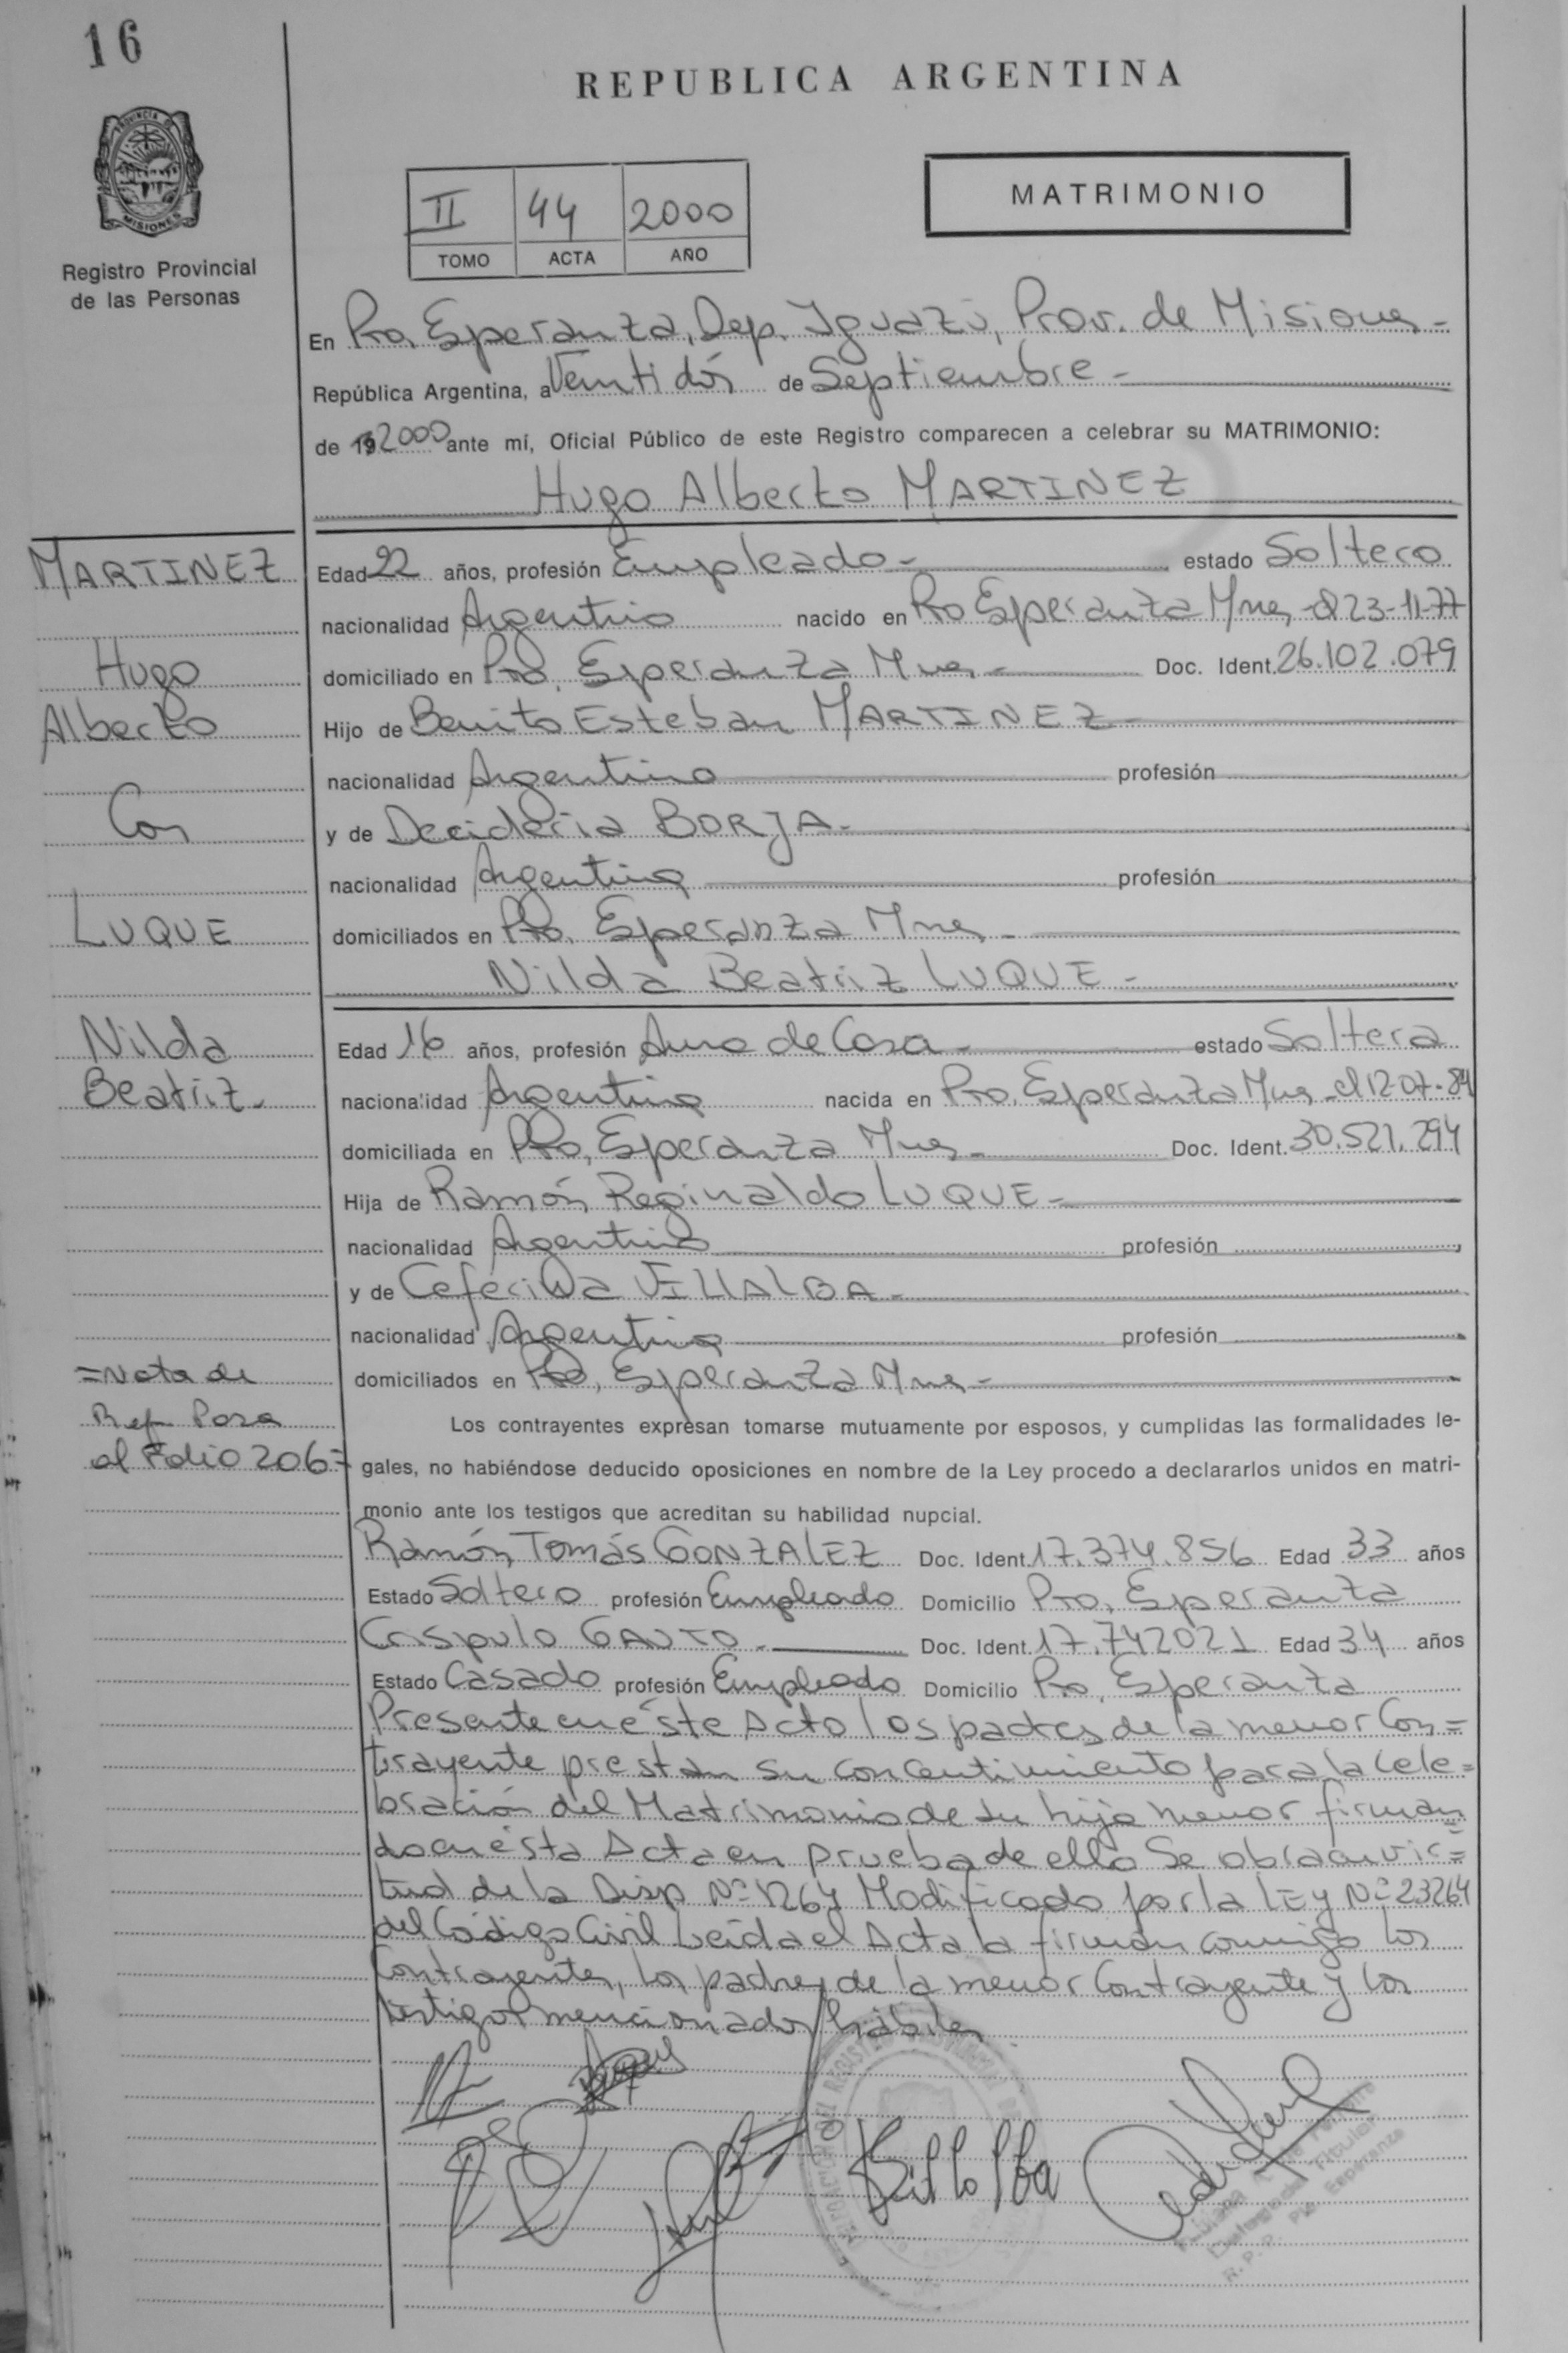 16
REPUBLICA ARGENTINA
PROVINCIA DE
MISIONES
Registro Provincial
de las Personas
II 44 2000
TOMO ACTA AÑO
MATRIMONIO
En Pto. Esperanza, Dep. Iguazú, Prov. de Misiones -
República Argentina, a Veintidós de Septiembre -
de 19 2000 ante mí, Oficial Público de este Registro comparecen a celebrar su MATRIMONIO:
Hugo Alberto MARTINEZ
MARTINEZ
Hugo
Alberto
Con
LUQUE
Nilda
Beatriz -
=Nota de
Ref. Pasa
al Folio 206=
Edad 22 años, profesión Empleado - estado Soltero
nacionalidad Argentino nacido en Pto Esperanza Mnes, el 23-11-77
domiciliado en Pto. Esperanza Mnes - Doc. Ident. 26.102.079
Hijo de Benito Esteban MARTINEZ -
nacionalidad Argentino profesión
y de Decideria BORJA -
nacionalidad Argentina profesión
domiciliados en Pto. Esperanza Mnes -
Nilda Beatriz LUQUE -
Edad 16 años, profesión Ama de Casa - estado Soltera
nacionalidad Argentina nacida en Pto. Esperanza Mnes - el 12-07-84
domiciliada en Pto. Esperanza Mnes - Doc. Ident. 30.521.294
Hija de Ramón Reginaldo LUQUE -
nacionalidad Argentino profesión
y de Ceferina VILLALBA -
nacionalidad Argentina profesión
domiciliados en Pto. Esperanza Mnes -
Los contrayentes expresan tomarse mutuamente por esposos, y cumplidas las formalidades le-
gales, no habiéndose deducido oposiciones en nombre de la Ley procedo a declararlos unidos en matri-
monio ante los testigos que acreditan su habilidad nupcial.
Ramón Tomás GONZALEZ Doc. Ident. 17.374.856 Edad 33 años
Estado Soltero profesión Empleado Domicilio Pto. Esperanza
Crispulo GAUTO - Doc. Ident. 17.742021 Edad 34 años
Estado Casado profesión Empleado Domicilio Pto. Esperanza
Presente en éste Acto los padres de la menor Con=
trayente prestan su concentimiento para la Cele=
bración del Matrimonio de su hija menor firman=
do en ésta Acta en prueba de ello Se obra en vir=
tud de la Disp Nº 1264 Modificado por la LEY Nº 23264
del Código Civil Leída el Acta la firman conmigo los
Contrayentes, los padres de la menor Contrayente y los
testigos mencionados hábiles
Villalba
Delegada Titular
R. P. P. Pto. Esperanza